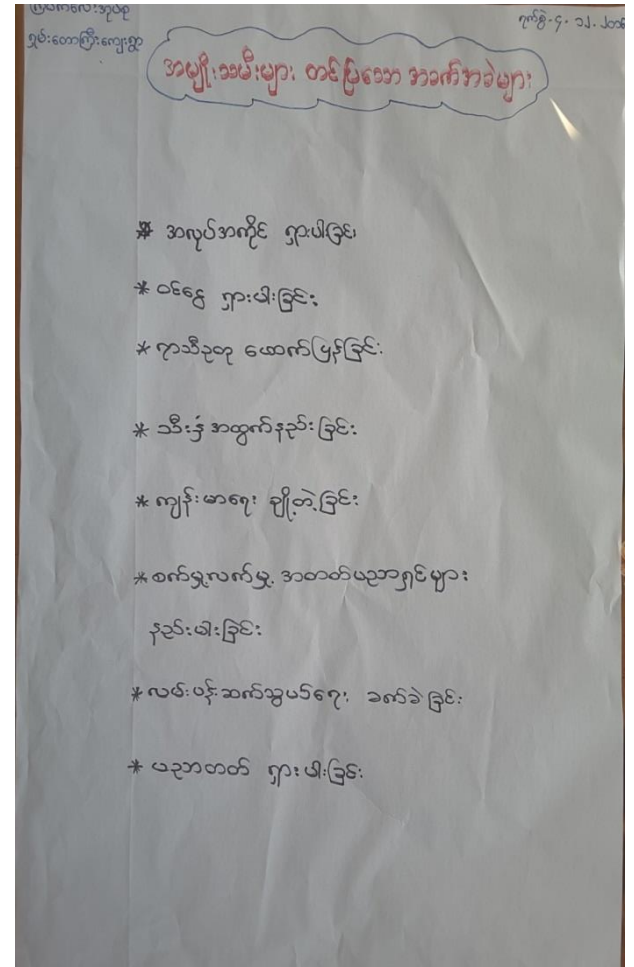 ရှမ်းတောကြီးကျေးရွာ
ရက်စွဲ-၄-၁၂-၂၀၁၈
အမျိုးသမီးများ တင်ပြသော အခက်အခဲများ
* အလုပ်အကိုင် ရှားပါးခြင်း
* ဝင်ငွေ ရှားပါးခြင်း
* ရာသီဥတု ဖောက်ပြန်ခြင်း
* သီးနှံ အထွက်နည်းခြင်း
* ကျန်းမာရေး ချို့တဲ့ခြင်း
* စက်မှု့လက်မှု့ အတတ်ပညာရှင်များ
နည်းပါးခြင်း
* လမ်းပန်းဆက်သွယ်ရေး ခက်ခဲခြင်း
* ပညာတတ် ရှားပါးခြင်း